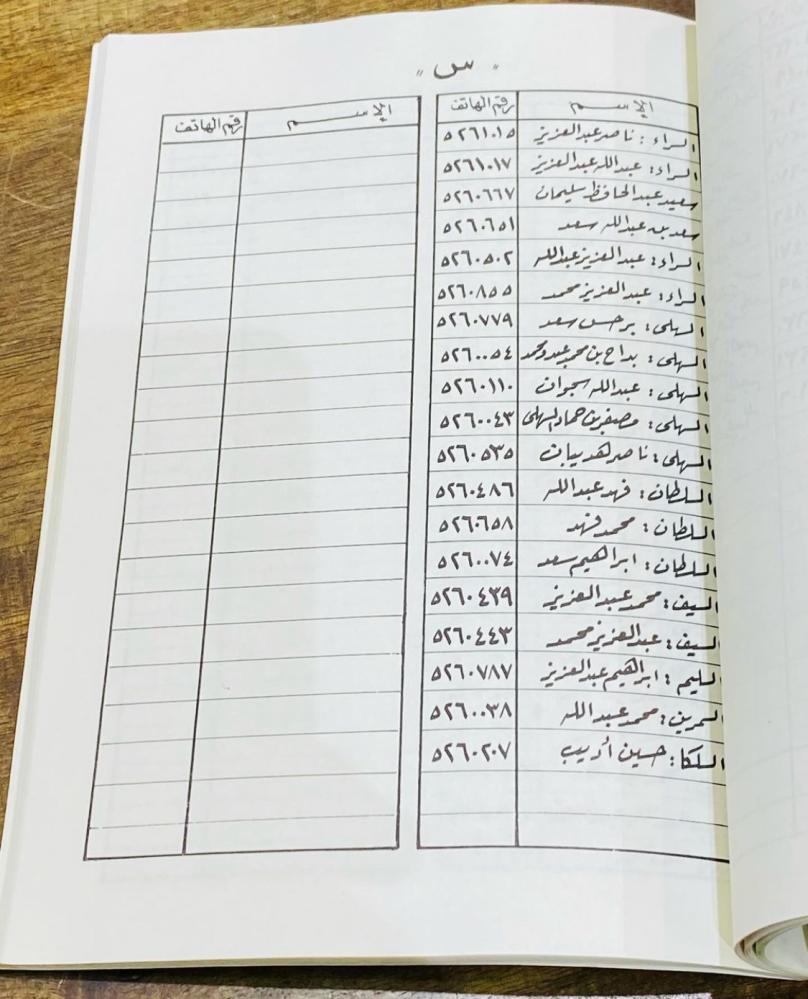 " س "
الإسم رقم الهاتف
الراء : ناصر عبدالعزيز ٥٢٦١٠١٥
الراء : عبدالله عبدالعزيز ٥٢٦١٠١٧
سعيد عبد الحافظ سليمان ٥٢٦٠٦٦٧
سعد بن عبدالله سعد ٥٢٦٠٦٥١
الراء : عبدالعزيز عبدالله ٥٢٦٠٥٠٢
الراء : عبدالعزيز محمد ٥٢٦٠٨٥٥
السهلى : برجس سعد ٥٢٦٠٧٧٩
السهلى : بداح بن محمد ٥٢٦٠٠٥٤
السهلى : عبدالله سجوان ٥٢٦٠١١٠
السهلى : مصفر بن حماد السهلى ٥٢٦٠٠٤٣
السهلى : ناصر هديبان ٥٢٦٠٥٣٥
السلطان : فهد عبدالله ٥٢٦٠٤٨٦
السلطان : محمد فهد ٥٢٦٠٦٥٨
السلطان : ابراهيم سعد ٥٢٦٠٠٧٤
السيف : محمد عبدالعزيز ٥٢٦٠٤٣٩
السيف : عبدالعزيز محمد ٥٢٦٠٤٤٣
السليم : ابراهيم عبدالعزيز ٥٢٦٠٧٨٧
السمرين : محمد عبدالله ٥٢٦٠٠٣٨
السلكا : حسين أديب ٥٢٦٠٢٠٧
الإسم رقم الهاتف